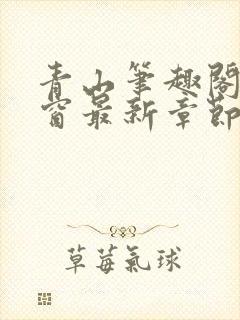 青山筆趣閣
窗最新章節
草莓氣球